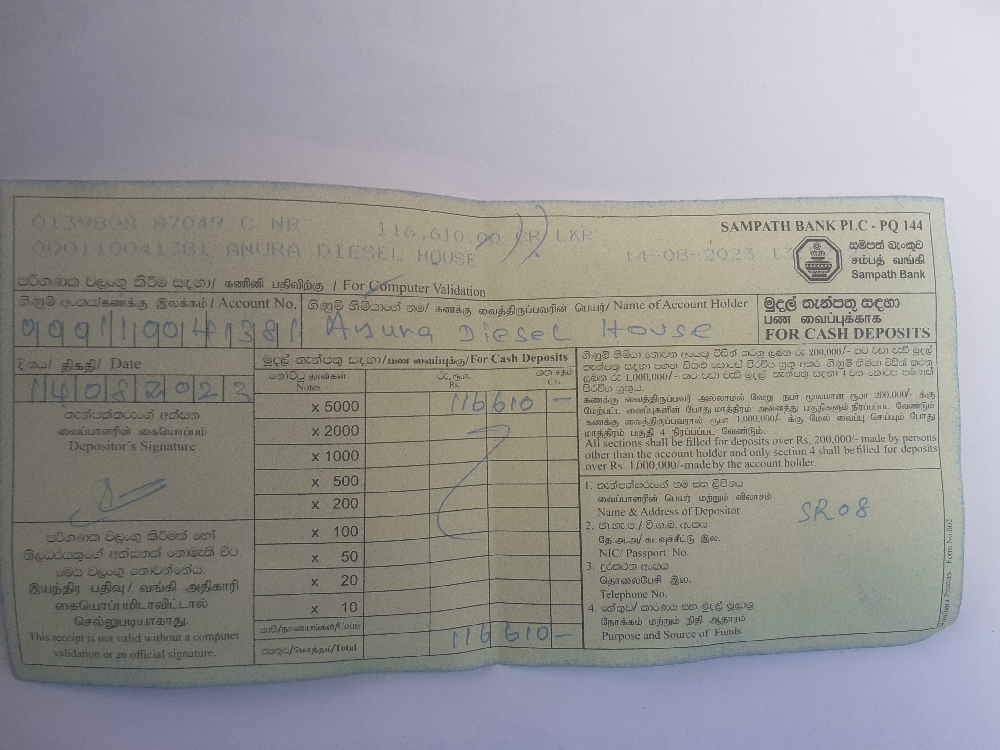 0139808 87049 C NR 116,610.00 CR LKR
000110041381 ANURA DIESEL HOUSE 14-08-2023
SAMPATH BANK PLC - PQ 144
සම්පත් බැංකුව
சம்பத் வங்கி
Sampath Bank
පරිගණක වලංගු කිරීම සඳහා / கணினி பதிவிற்கு / For Computer Validation
ගිණුම් අංකය/கணக்கு இலக்கம்/ Account No.
ගිණුම් හිමියාගේ නම/ கணக்கு வைத்திருப்பவரின் பெயர்/ Name of Account Holder
Diesel House
මුදල් තැන්පතු සඳහා
பண வைப்புக்காக
FOR CASH DEPOSITS
දිනය/ திகதி/ Date
14082023
තැන්පත්කරුගේ අත්සන
வைப்பாளரின் கையொப்பம்
Depositor's Signature
මුදල් තැන්පතු සඳහා/பண வைப்புக்கு/For Cash Deposits
Notes
Rs.
Cts.
x 5000 116610 —
x 2000
x 1000
x 500
x 200
x 100
x 50
x 20
x 10
කාසි/நாணயங்கள்/Coins
එකතුව/மொத்தம்/Total 116610 —
இயந்திர பதிவு/ வங்கி அதிகாரி
கையொப்பமிடாவிட்டால்
செல்லுபடியாகாது.
This receipt is not valid without a computer
validation or an official signature.
கணக்கு வைத்திருப்பவர் அல்லாமல் வேறு நபர் மூலமான ரூபா 200,000/- க்கு
மேற்பட்ட வைப்புகளின் போது மாத்திரம் அனைத்து பகுதிகளும் நிரப்பப்பட வேண்டும்
கணக்கு வைத்திருப்பவரால் ரூபா 1,000,000/- க்கு மேல் வைப்பு செய்யும் போது
மாத்திரம் பகுதி 4 நிரப்பப்பட வேண்டும்.
All sections shall be filled for deposits over Rs. 200,000/- made by persons
other than the account holder and only section 4 shall be filled for deposits
over Rs. 1,000,000/-made by the account holder.
1. තැන්පත්කරුගේ නම සහ ලිපිනය
வைப்பாளரின் பெயர் மற்றும் விலாசம்
Name & Address of Depositor
SR08
2. ජා.හැ.ප./ වි.ග.බ. අංකය
தே.அ.அ/ கடவுச்சீட்டு இல.
NIC/ Passport No.
3. දුරකථන අංකය
தொலைபேசி இல.
Telephone No.
4. හේතුව/ කාරණය සහ මුදල් මූලාශ්‍ර
நோக்கம் மற்றும் நிதி ஆதாரம்
Purpose and Source of Funds